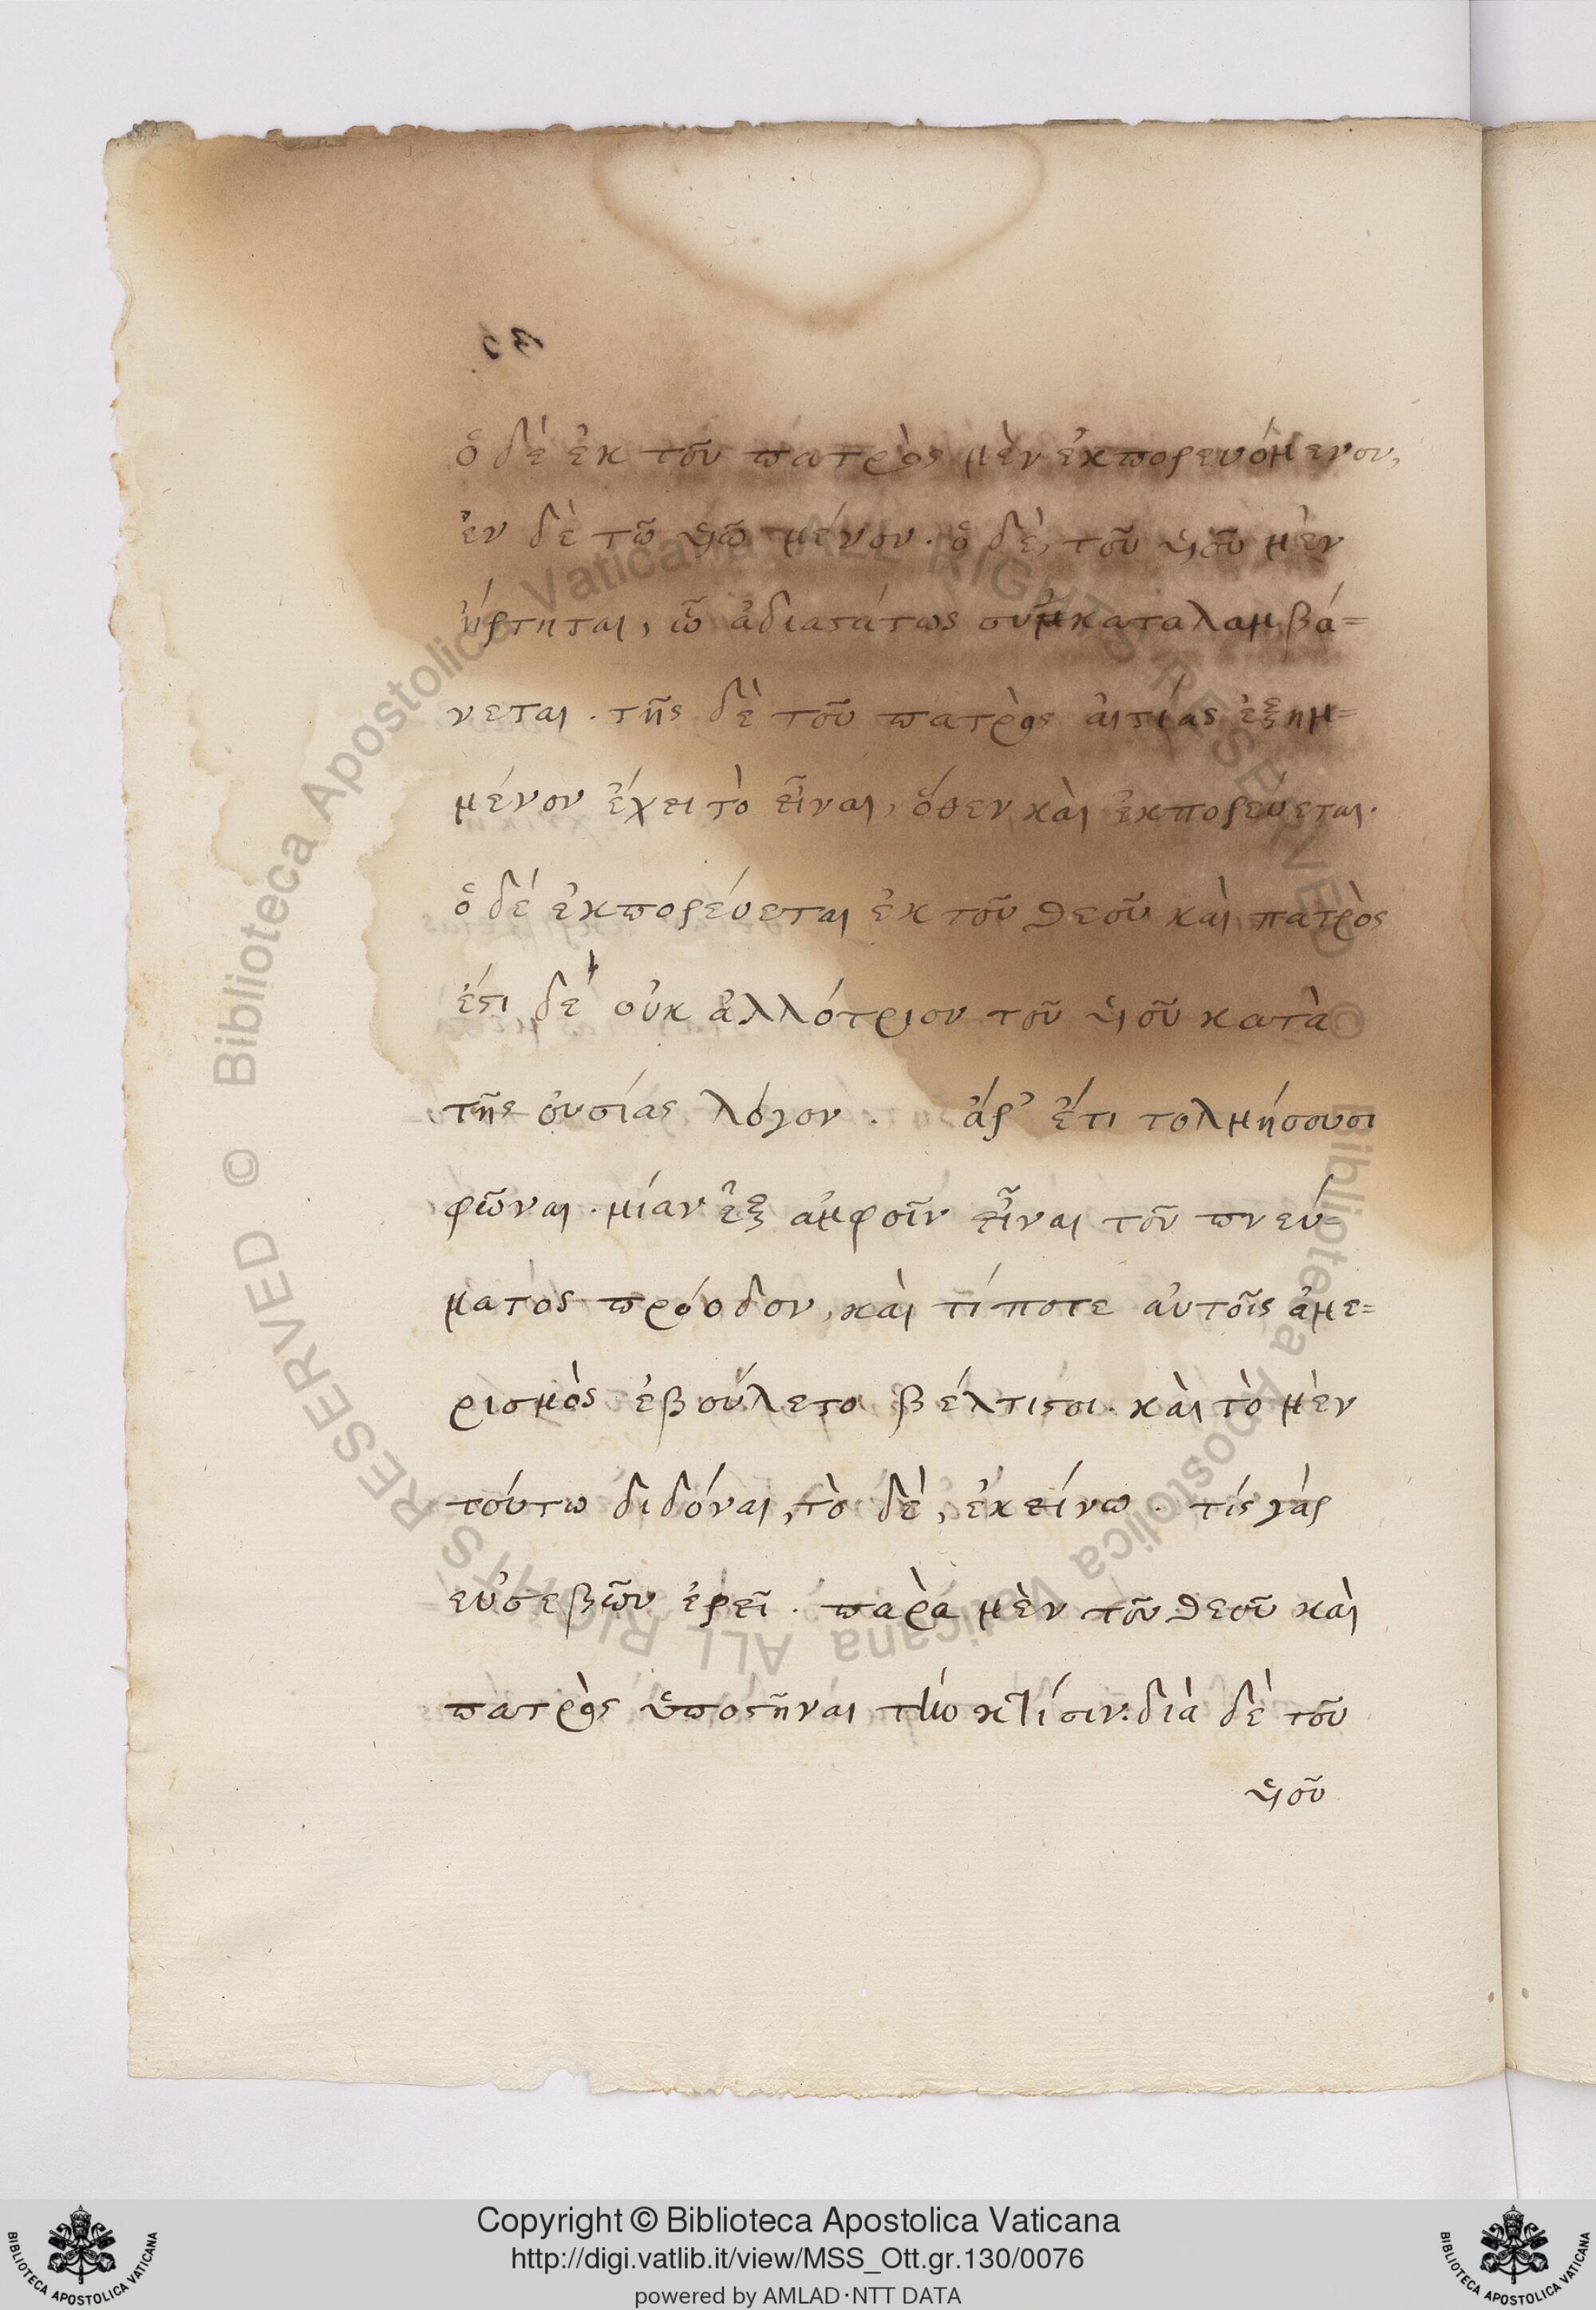 ὁ δέ ἐκ τοῦ πατρὸς μὲν ἐκπορευόμενον,
ἐν δὲ τῶ ὑιῶ μένον. ὁ δὲ, τοῦ ὑιοῦ μὲν
ἤρτηται, ὧ ἀδιαστάτως συμκαταλαμβά=
νεται. τῆς δὲ τοῦ πατρὸς ἀιτίας ἐξημ=
μένον ἔχει τὸ εἶναι, ὅθεν καὶ ἐκπορεύεται.
ὁ δέ ἐκπορεύεται ἐκ τοῦ θεοῦ καὶ πατρὸς
ἔστι δέ οὐκ ἀλλότριον τοῦ ὑιοῦ κατὰ
τῆς ὀυσίας λόγον. ἆρ' ἔτι τολμήσουσι
φῶναι. μίαν ἐξ ἀμφοῖν εἶναι τοῦ πνεύ=
ματος πρόοδον, καὶ τίποτε ἀυτοῖς ἀμε=
ρισμὸς ἐβούλετο βέλτιστοι. καὶ τὸ μὲν
τούτω διδόναι, τὸ δὲ, ἐκείνω. τίς γάρ
εὐσεβῶν ἐρεῖ. παρὰ μὲν τοῦ θεοῦ καὶ
πατρὸς ὑποστῆναι τὴν κτίσιν. διὰ δὲ τοῦ
ὑιοῦ
Copyright © Biblioteca Apostolica Vaticana
http://digi.vatlib.it/view/MSS_Ott.gr.130/0076
powered by AMLAD·NTT DATA
BIBLIOTECA APOSTOLICA VATICANA
BIBLIOTECA APOSTOLICA VATICANA
© Biblioteca Apostolica Vaticana ALL RIGHTS RESERVED
© Biblioteca Apostolica Vaticana ALL RIGHTS RESERVED